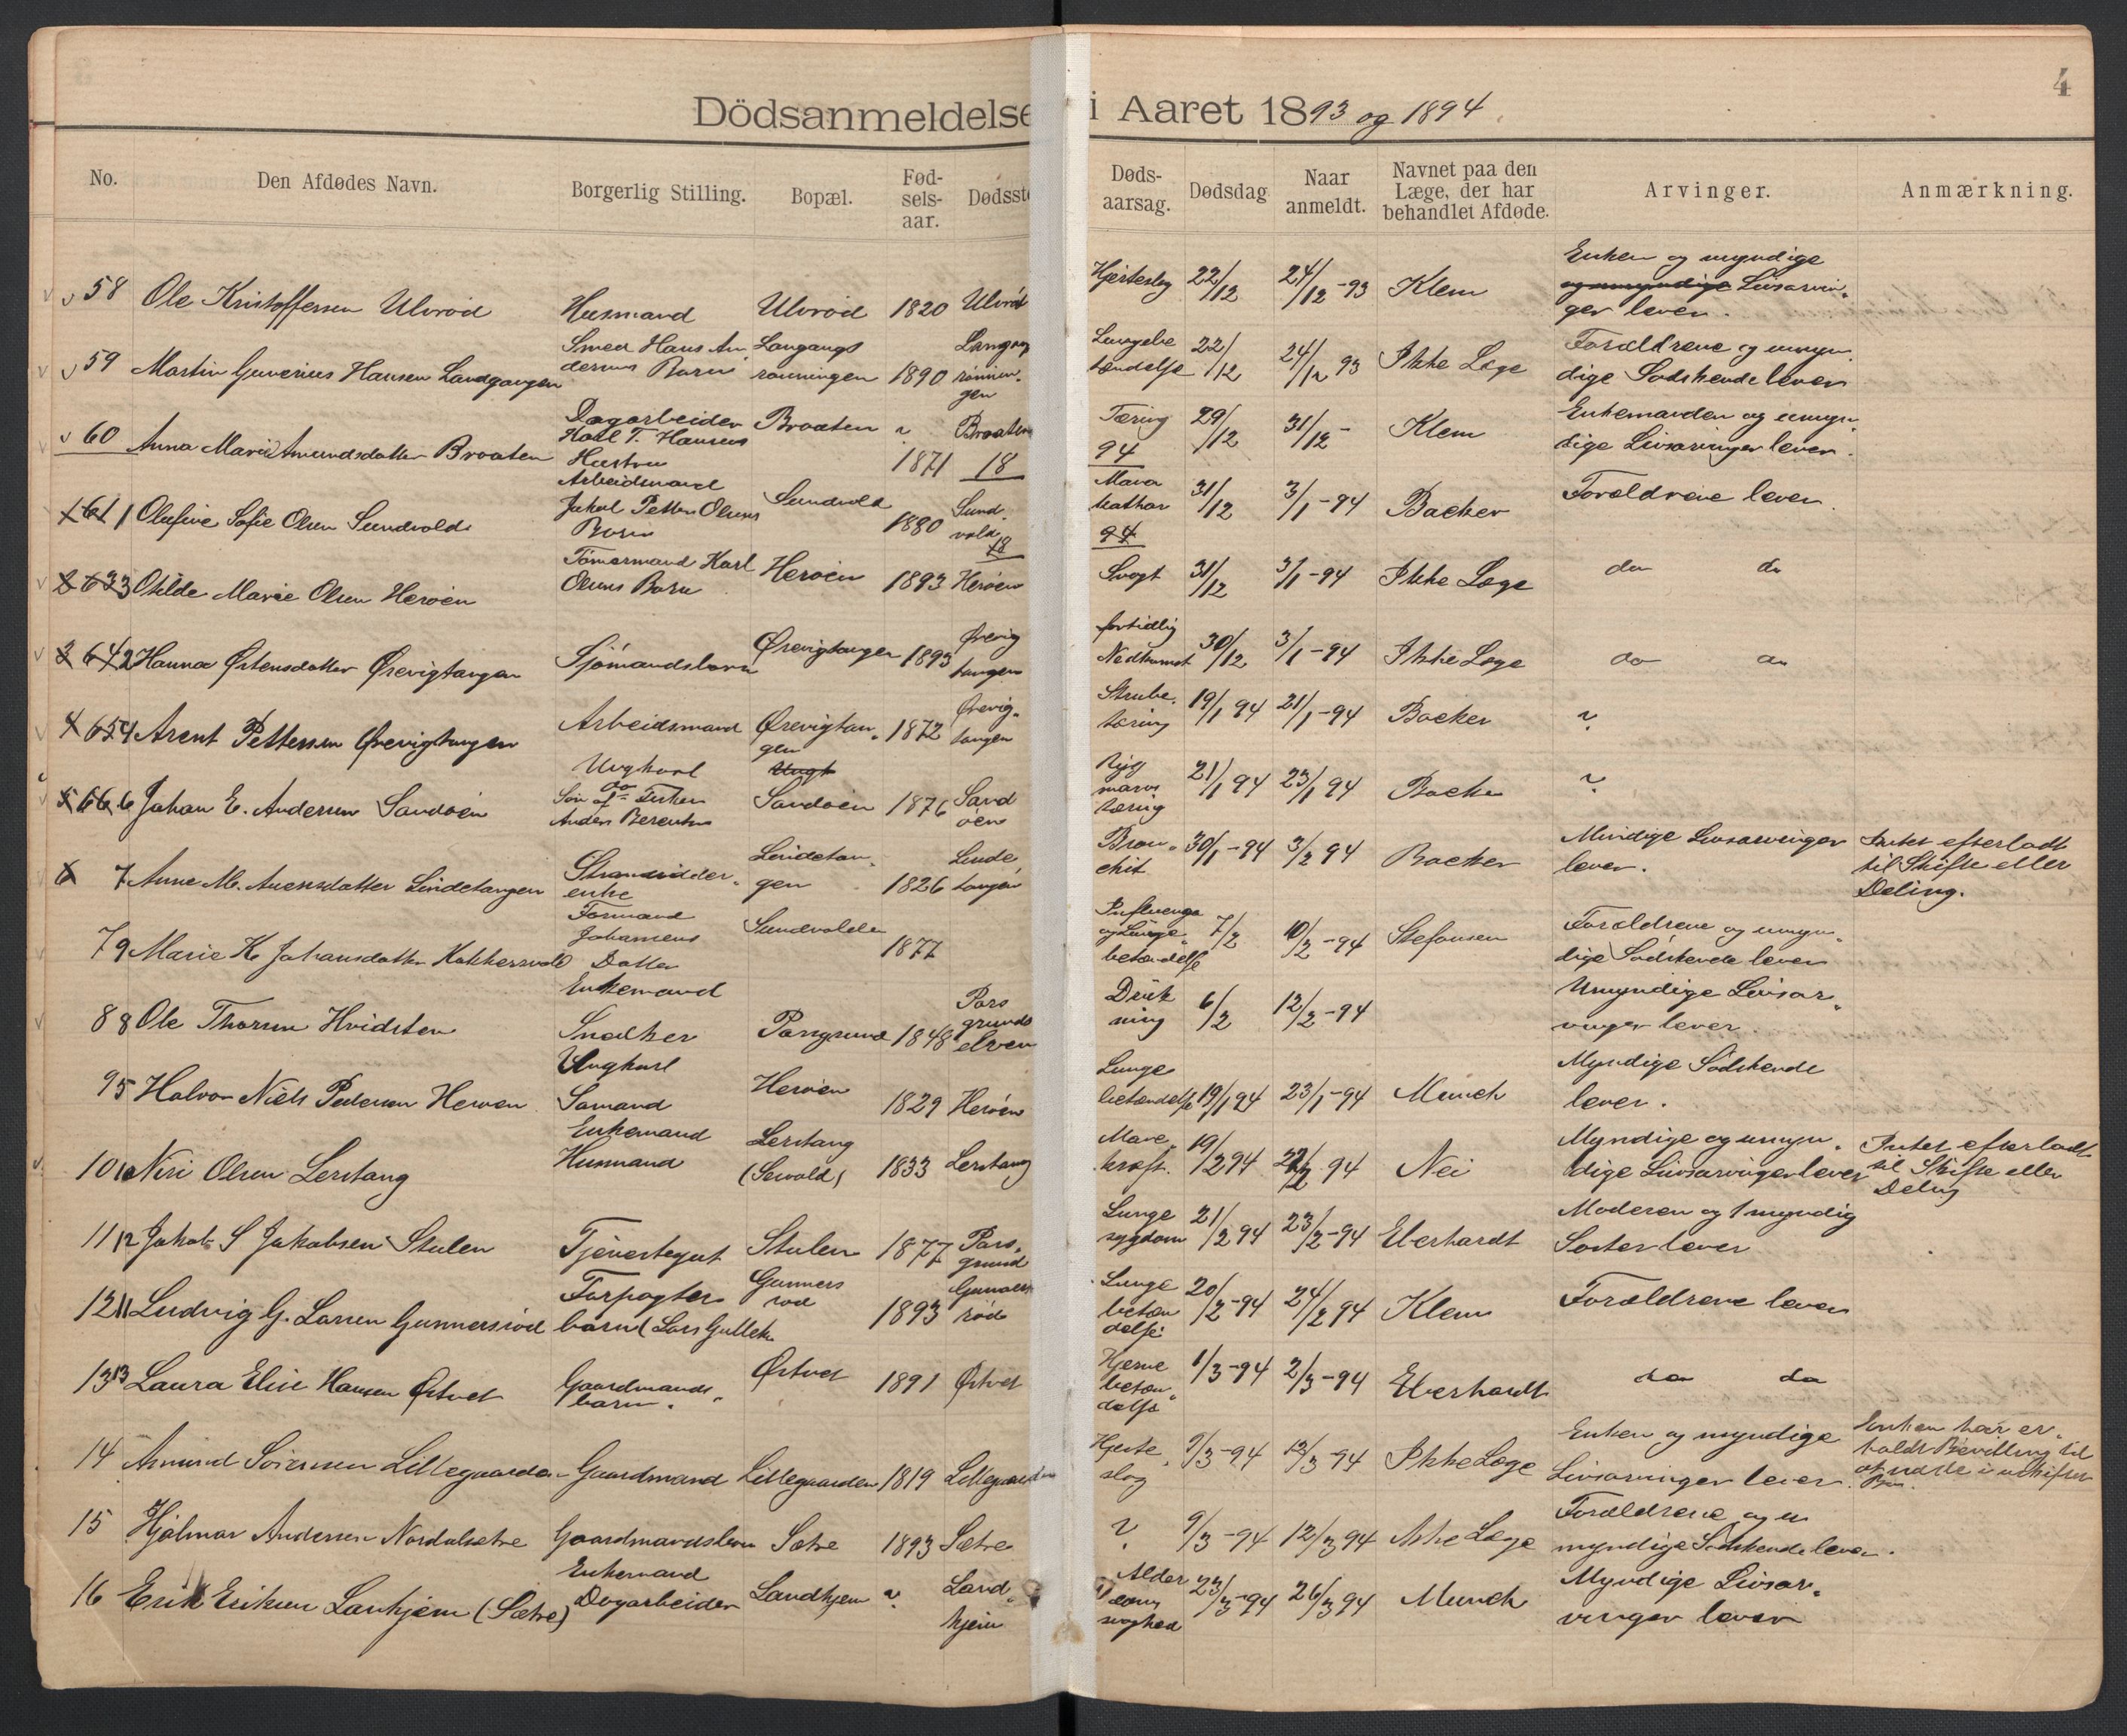 Dödsanmeldelse i Aaret 1893 og 1894
4
No. Den Afdødes Navn. Borgerlig Stilling. Bopæl. Fød-sels-aar. Dødsst Døds-aarsag. Dødsdag Naar anmeldt. Navnet paa den Læge, der har behandlet Afdøde. Arvinger. Anmærkning.
58 Ole Kristoffersen Ulvrød Husmand Ulvrød 1820 Ulvrød Hjerteslag 22/12 24/12-93 Klem Enken og myndige og umyndige Livsarvinger lever.
59 Martin Gunerius Hansen Landgangen Smed Hans Andersens Barn Langangsrønningen 1890 Langangrønningen Lungebetændelse 22/12 24/12 93 Ikke Læge Forældrene og umyndige Sødskende lever
60 Anna Marie Amundsdatter Braaten Dagarbeider Karl T. Hansens Hustru Braaten ? 1871 Braaten Tæring 29/12 31/12- Klem Enkemanden og umyndige Livsarvinger lever.
18 94
1 61 1 Olufine Sofie Olsen Sundvold Arbeidsmand Jakob Petter Olsens Barn Sundvold 1880 Sundvold Mavekathar 31/12 3/1-94 Backer Forældrene lever.
18 94
2 63 3 Otilde Marie Olsen Herøen Tømermand Karl Olsens Barn Herøen 1893 Herøen Svagt 31/12 3/1-94 Ikke Læge do do
3 64 2 Hanna Østensdatter Ørevigtangen Sjømandsbarn Ørevigtangen 1893 Ørevigtangen fortidlig Nedkomst 30/12 3/1-94 Ikke Læge do do
4 65 4 Arent Pettersen Ørevigtangen Arbeidsmand Ørevigtangen 1872 Ørevigtangen Strubetæring 19/1 94 21/1-94 Backer ?
5 66 6 Johan E. Andersen Sandøen Ungkarl Søn af Anders Berentsen Sandøen 1876 Sandøen Rygmarvstæring 21/1 94 23/1 94 Backer ?
6 7 Anne M. Auensdatter Lindetangen Strandsidderenke Lindetangen 1826 Lindetangen Bronchit 30/1-94 3/2 94 Backer Mindige Livsarvinger lever. Intet efterladt til Skifte eller Deling.
7 9 Marie K. Johansdatter Kokkersvold Formand Johansens Datter Sundvolden 1877 Influenza og Lungebetændelse 7/2 10/2-94 Stefansen Forældrene og umyndige Sødskende lever
8 8 Ole Thorsen Hvidsten Enkemand Snedker Porsgrund 1848 Porsgrundselven Drukning 6/2 12/2-94 Umyndige Livsarvinger lever.
9 5 Halvor Niels Pedersen Herøen Ungkarl Sømand Herøen 1829 Herøen Lungebetændelse 19/1 94 23/1-94 Munch Myndige Sødskende lever.
10 10 Niri Olsen Lerstang Enkemand Husmand Lerstang 1833 Lerstang Mavekræft. 19/2 94 22/2 94 Nei Myndige og umyndige Livsarvinger lever Intet efterladt til Skifte eller Deling
11 12 Jakob S Jakobsen Stulen Tjenestegut Stulen 1877 Porsgrund Lungesygdom 21/2 94 23/2-94 Eberhardt Moderen og 1 myndig Søster lever
12 11 Ludvig G. Larsen Gunnersrød Forpagterbarn (Lars Gulleks Gunnersrød 1893 Gunnersrød Lungebetændelse 20/2-94 24/2 94 Klem Forældrene lever
13 13 Laura Elise Hansen Østvet Gaardmandsbarn. Østvet 1891 Østvet Hjernebetændelse 1/3-94 2/3-94 Eberhardt do do
14 Amund Sørensen Lillegaarden Gaardmand Lillegaarden 1819 Lillegaarden Hjerteslag 9/3-94 13/3-94 Ikke Læge Enken og myndige Livsarvinger lever. Enken har erholdt Bevilling til at sidde i uskiftet Bo.
15 Hjalmar Andersen Nordalsetre Gaardmandsbarn Sætre 1893 Sætre ? 9/3-94 12/3 94 Ikke Læge Forældrene og umyndige Sødskende lever.
16 Erik Eriksen Lanhjem (Sætre) Enkemand Dagarbeider Landhjem ? Landhjem Alderdomssvaghed 23/3-94 26/3 94 Munch Myndige Livsarvinger lever